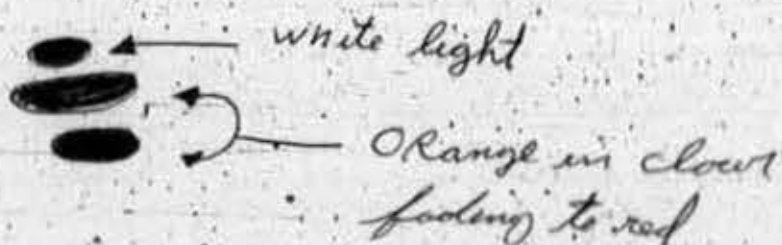 white light
ORange in clowr
fading to red